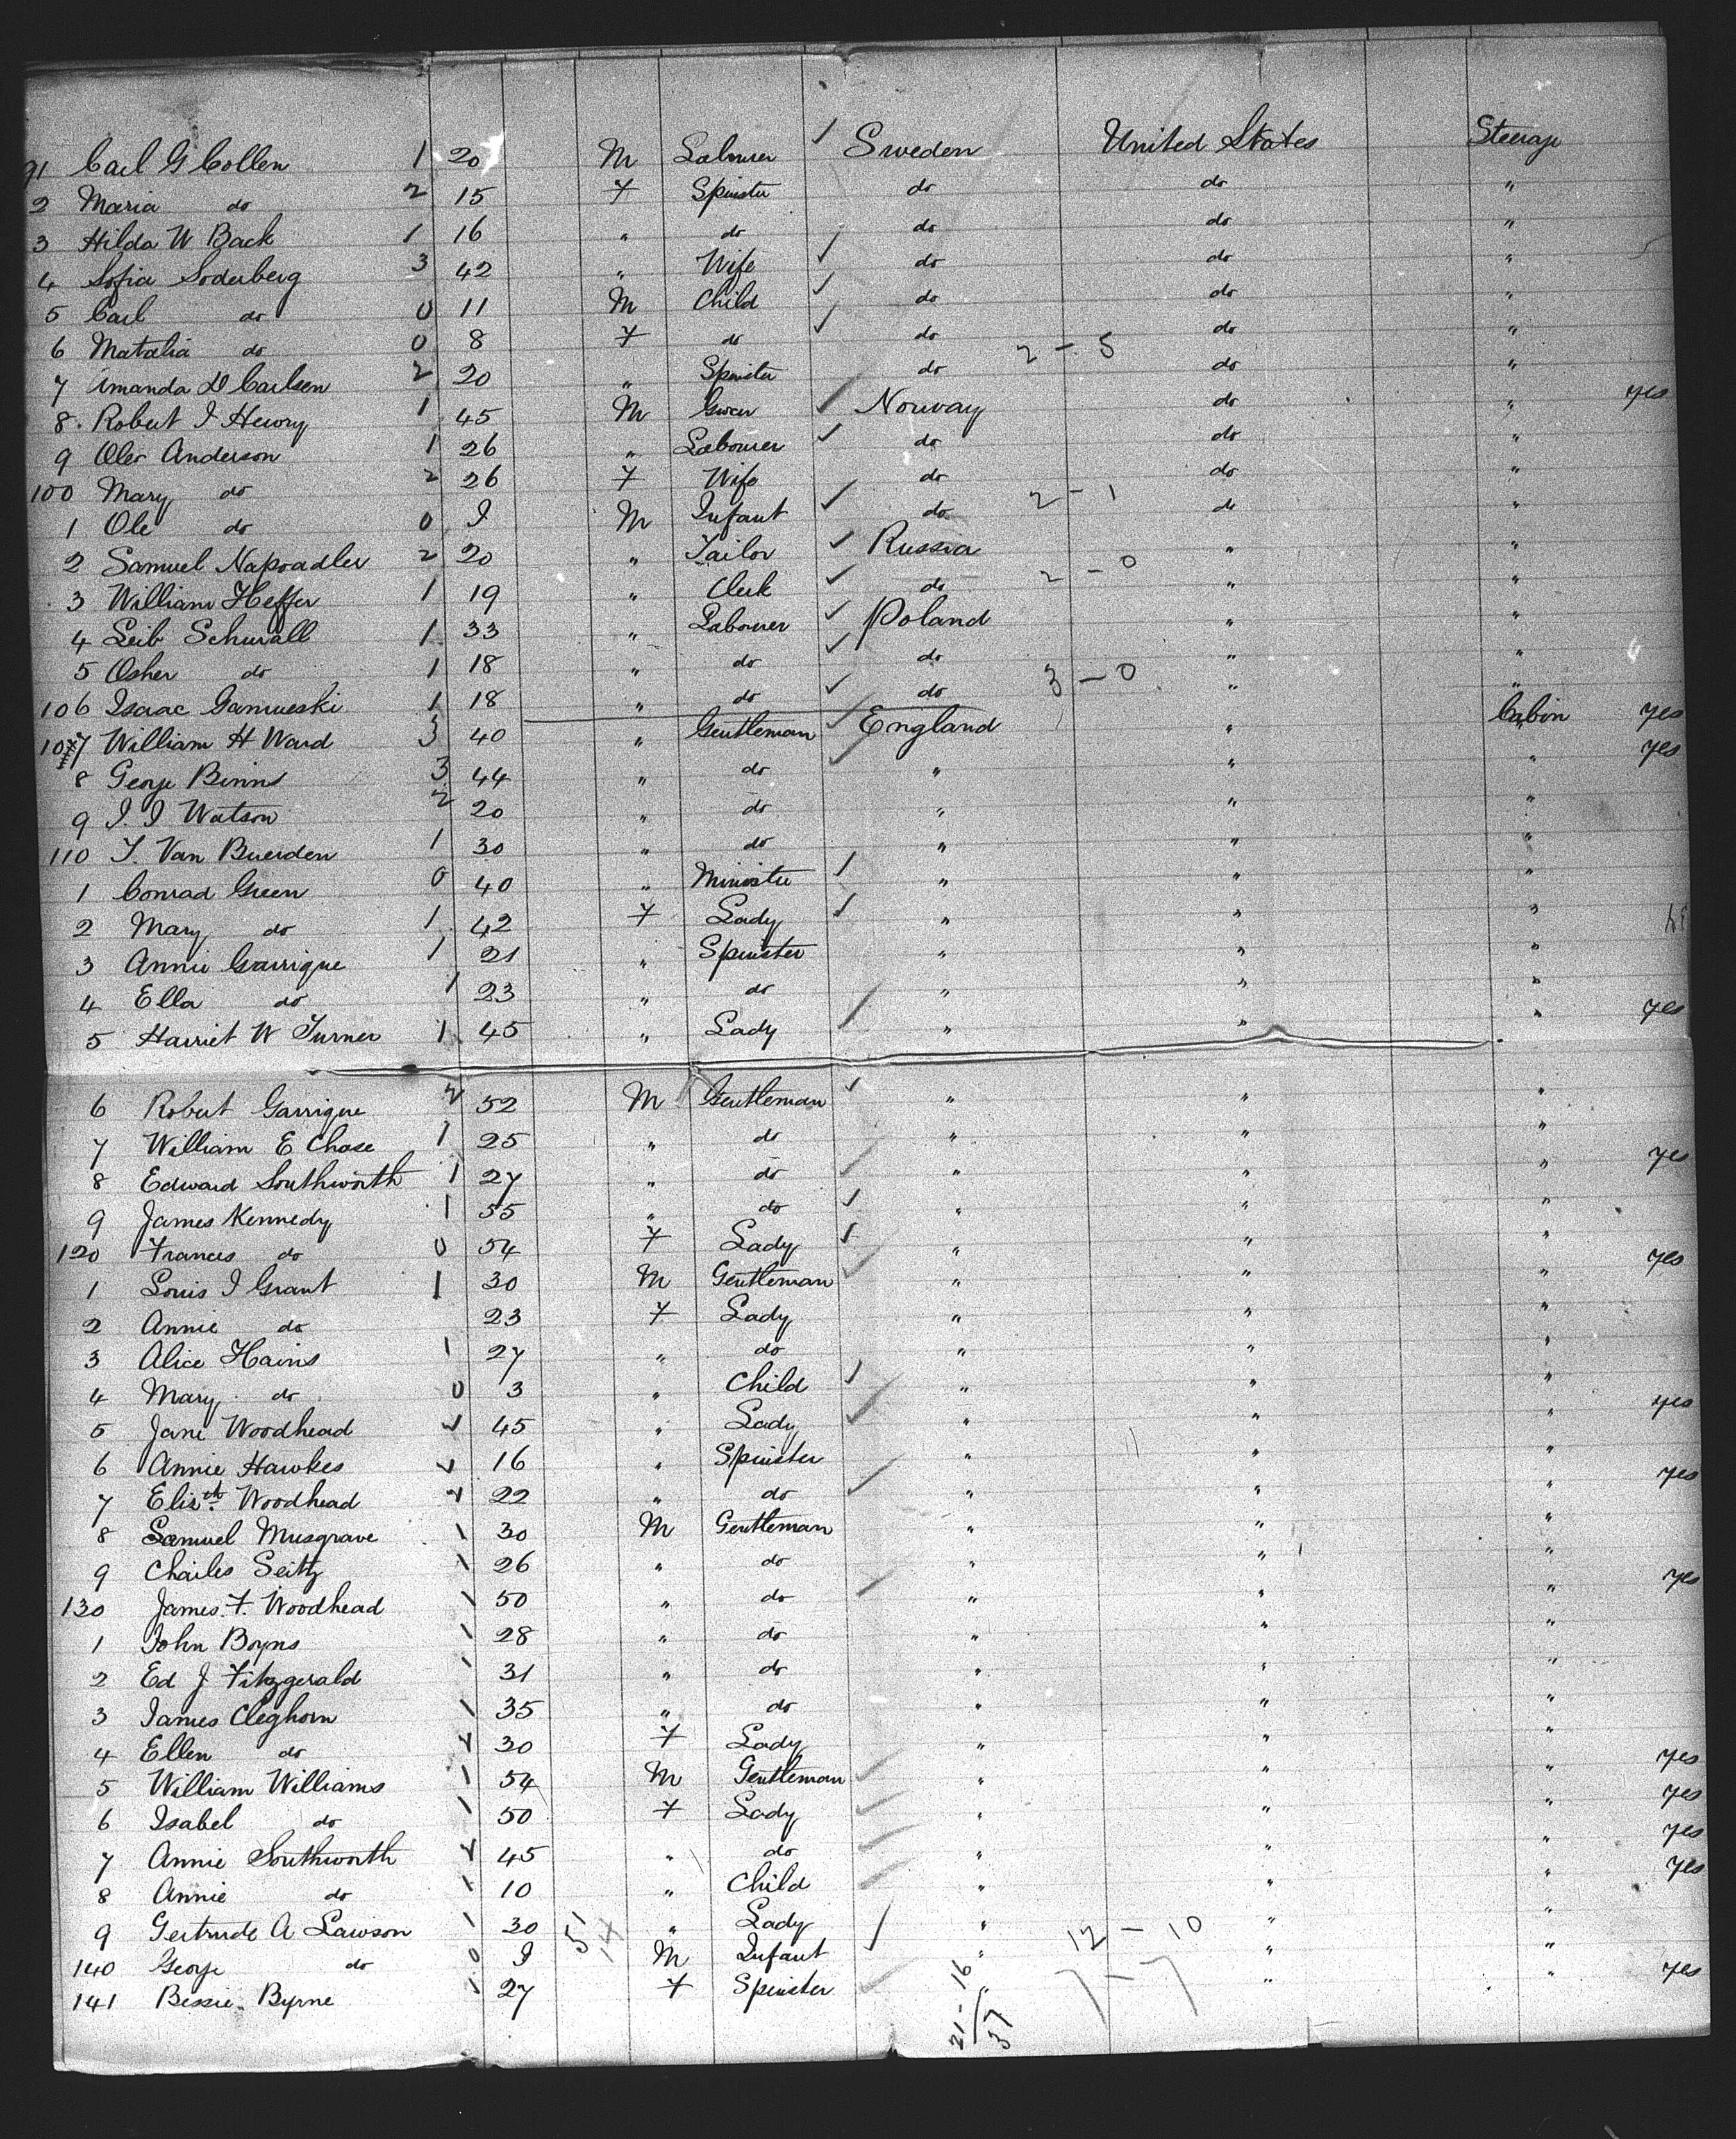 91 Carl G Collen 1 20 M Labourer ✓ Sweden United States Steerage
2 Maria do 2 15 F Spinster do do "
3 Hilda W Back 1 16 " do do do "
4 Sofia Soderberg 3 42 " Wife ✓ do do "
5 Carl do 0 11 M Child ✓ do do "
6 Matalia do 0 8 F do ✓ do do "
2 - 5
7 Amanda D Carlsen 2 20 " Spinster do do "
8 Robert J Henry 1 45 M Grocer ✓ Norway do " yes
9 Oler Anderson 1 26 " Labourer ✓ do do "
100 Mary do 2 26 F Wife do do "
2 - 1
1 Ole do 0 I M Infant ✓ do do "
2 Samuel Napoadler 2 20 " Tailor ✓ Russia " "
2 - 0
3 William Heffer 1 19 " Clerk ✓ do " "
4 Leib Schwall 1 33 " Labourer ✓ Poland " "
5 Osher do 1 18 " do ✓ do " "
3 - 0
106 Isaac Gamueski 1 18 " do ✓ do " "
107 William H Ward 3 40 " Gentleman ✓ England " Cabin yes
8 George Binns 3 44 " do ✓ " " " yes
9 J. J Watson 2 20 " do " " "
110 J. Van Buerden 1 30 " do " " "
1 Conrad Green 0 40 " Minister ✓ " " "
2 Mary do 1 42 F Lady ✓ " " "
3 Annie Garrigue 1 21 " Spinster " " "
4 Ella do 1 23 " do " " "
5 Harriet W Turner 1 45 " Lady ✓ " " " yes
6 Robert Garrigue 2 52 M Gentleman ✓ " " "
7 William E Chase 1 25 " do " " "
8 Edward Southworth 1 27 " do ✓ " " " yes
9 James Kennedy 1 55 " do ✓ " " "
120 Frances do 0 54 F Lady ✓ " " "
1 Louis J Grant 1 30 M Gentleman ✓ " " " yes
2 Annie do 23 F Lady " " "
3 Alice Hains 1 27 " do " " "
4 Mary do 0 3 " Child ✓ " " "
5 Jane Woodhead 2 45 " Lady ✓ " " " yes
6 Annie Hawkes 2 16 " Spinster " " "
7 Elizth. Woodhead 2 22 " do ✓ " " " yes
8 Samuel Musgrave 1 30 M Gentleman " " "
9 Charles Seitz 1 26 " do " " "
130 James. F. Woodhead 1 50 " do ✓ " " " yes
1 John Boyns 1 28 " do " " "
2 Ed J Fitzgerald 1 31 " do " " "
3 James Cleghorn 1 35 " do " " "
4 Ellen do 2 30 F Lady " " "
5 William Williams 1 54 M Gentleman ✓ " " " yes
6 Isabel do 1 50 F Lady ✓ " " " yes
7 Annie Southworth 2 45 " do ✓ " " " yes
8 Annie do 1 10 " Child ✓ " " " yes
9 Gertrude A Lawson 1 30 51 14 " Lady ✓ " 12 - 10 " "
140 George do 0 I M Infant " " "
141 Bessie Byrne 1 27 F Spinster ✓ " 7 - 7 " " yes
21 - 16
37